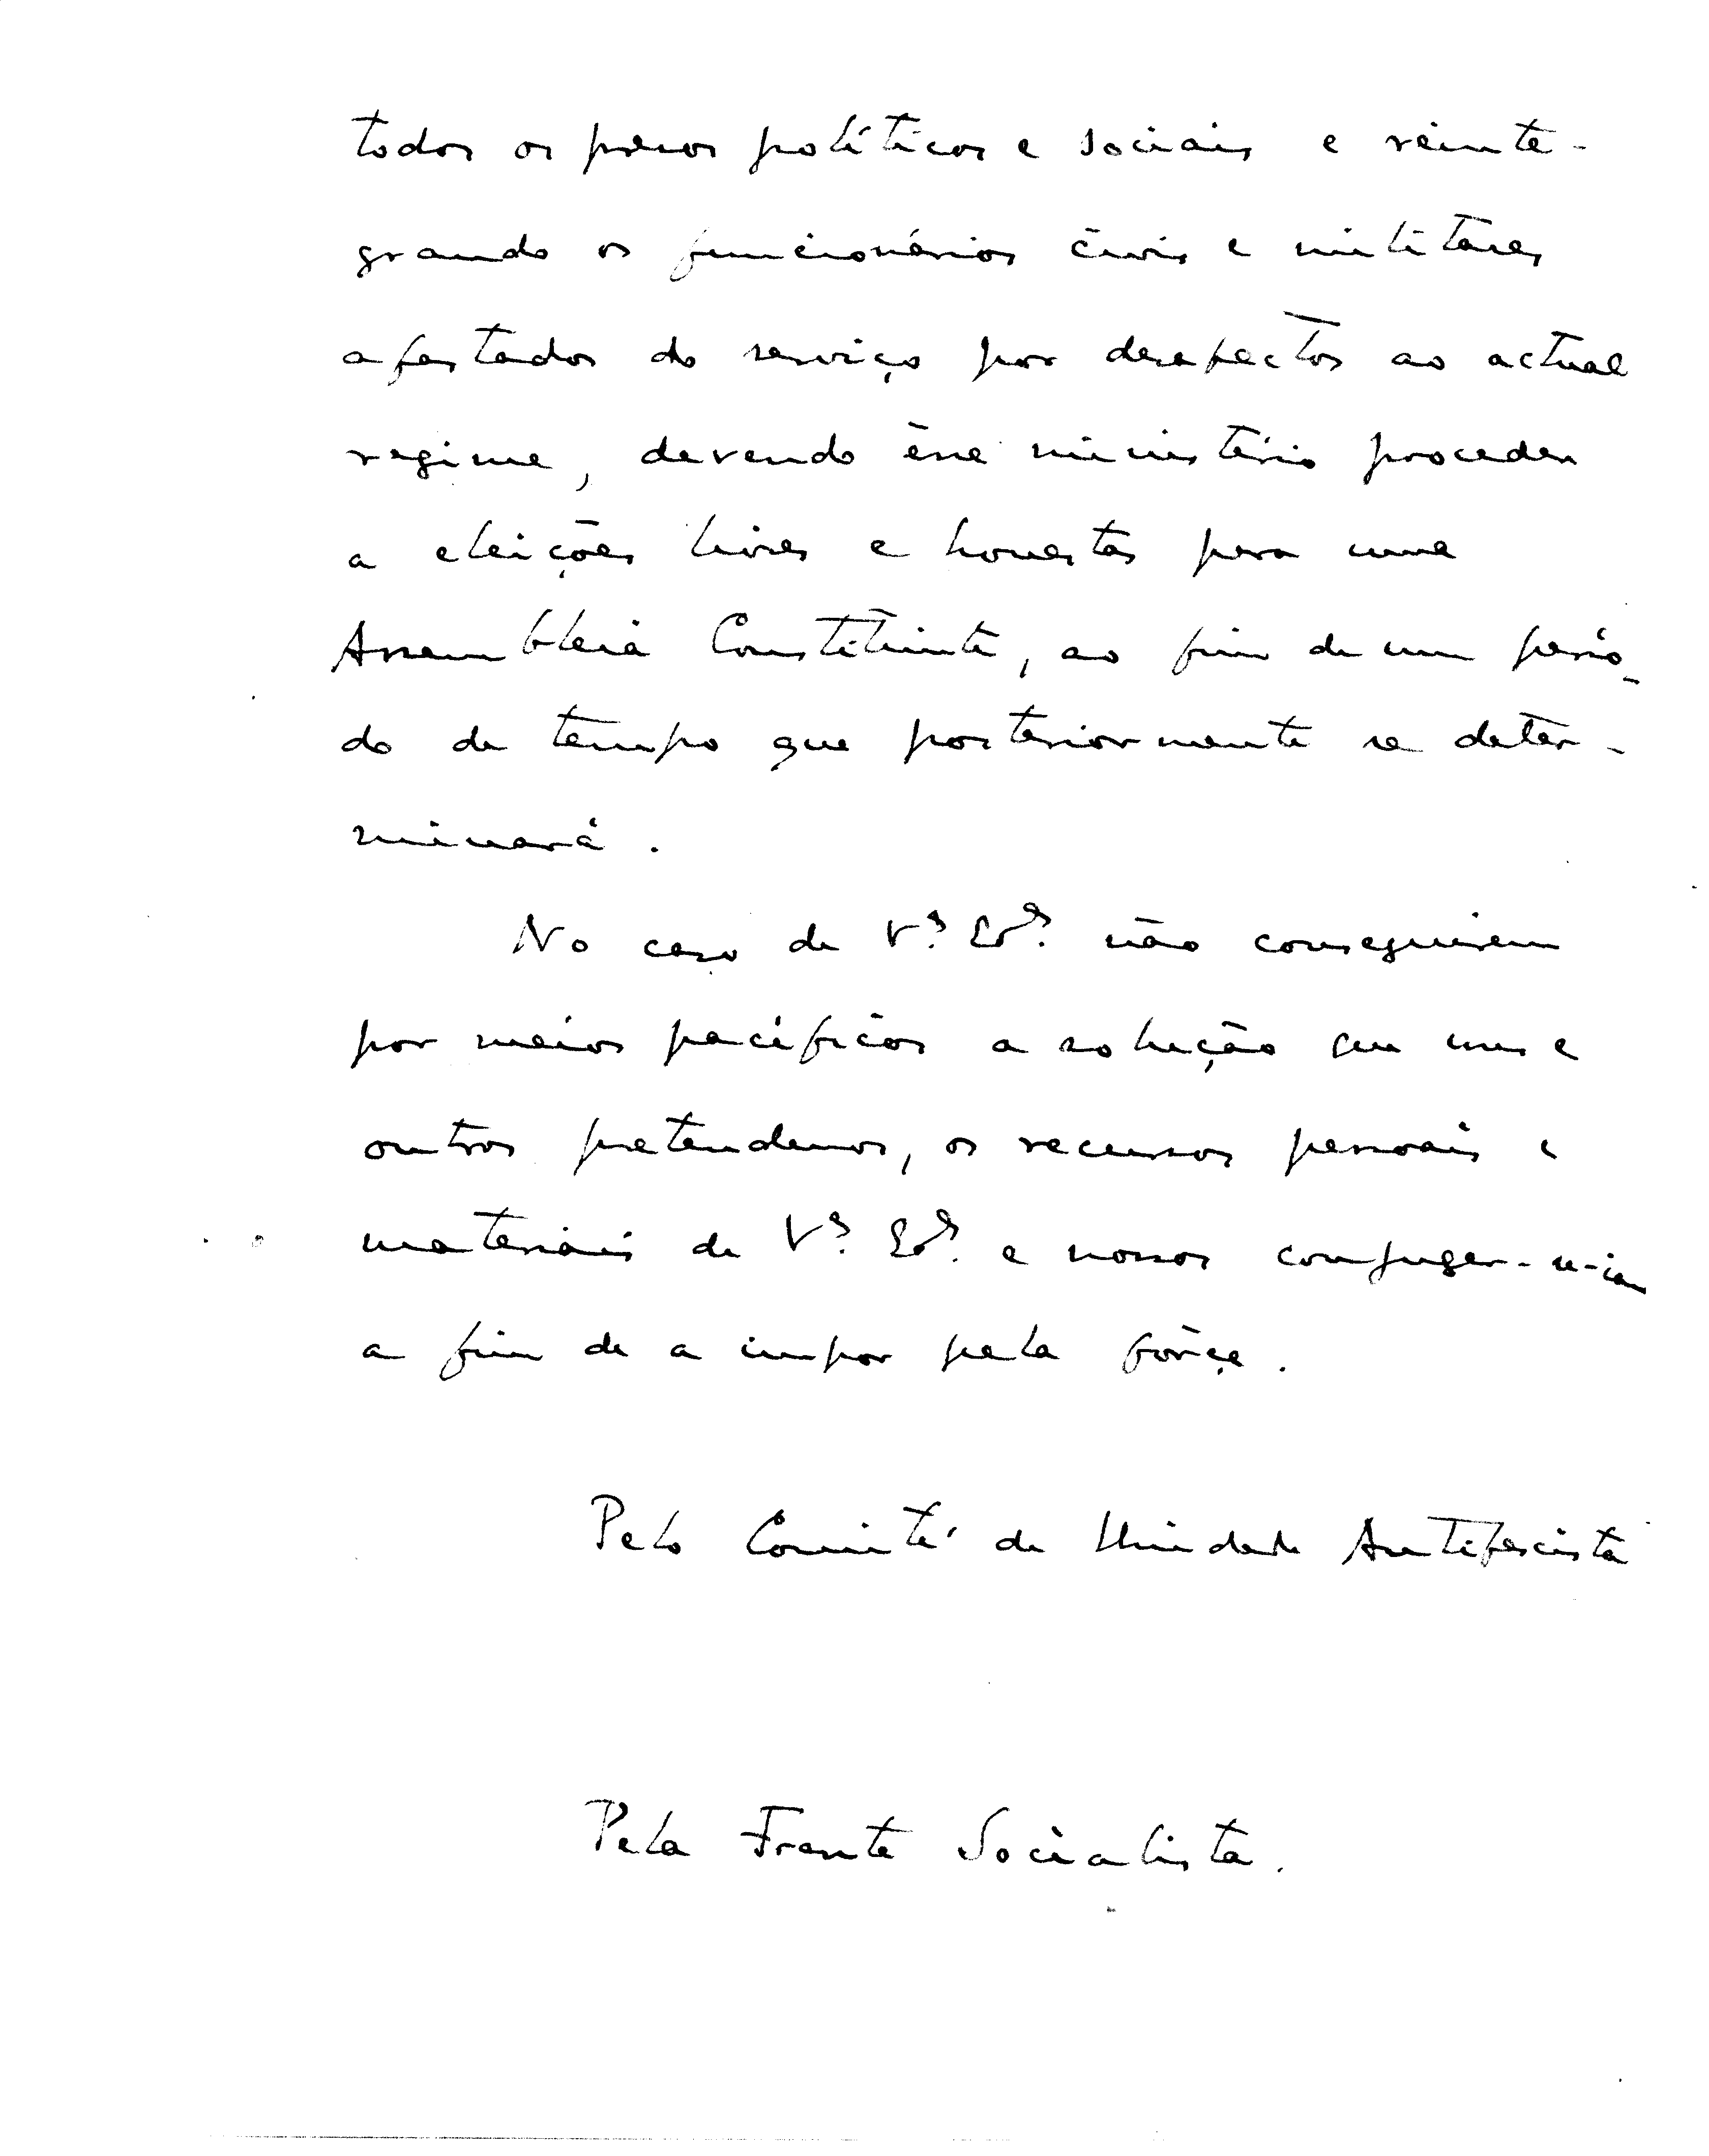 todos os presos políticos e sociais e reinte-
grando os funcionários civis e militares
afastados do serviço por desafectos ao actual
regime, devendo êsse ministério proceder
a eleições livres e honestas para uma
Assembleia Constituinte, ao fim de um perío-
do de tempo que posteriormente se deter-
minará.
No caso de V.ªs Ex.ªs não conseguirem
por meios pacíficos a solução que uns e
outros pretendemos, os recursos pessoais e
materiais de V.ªs Ex.ªs e nossos conjugar-se-iam
a fim de a impor pela fôrça.
Pelo Comité de Unidade Antifascista
Pela Frente Socialista.